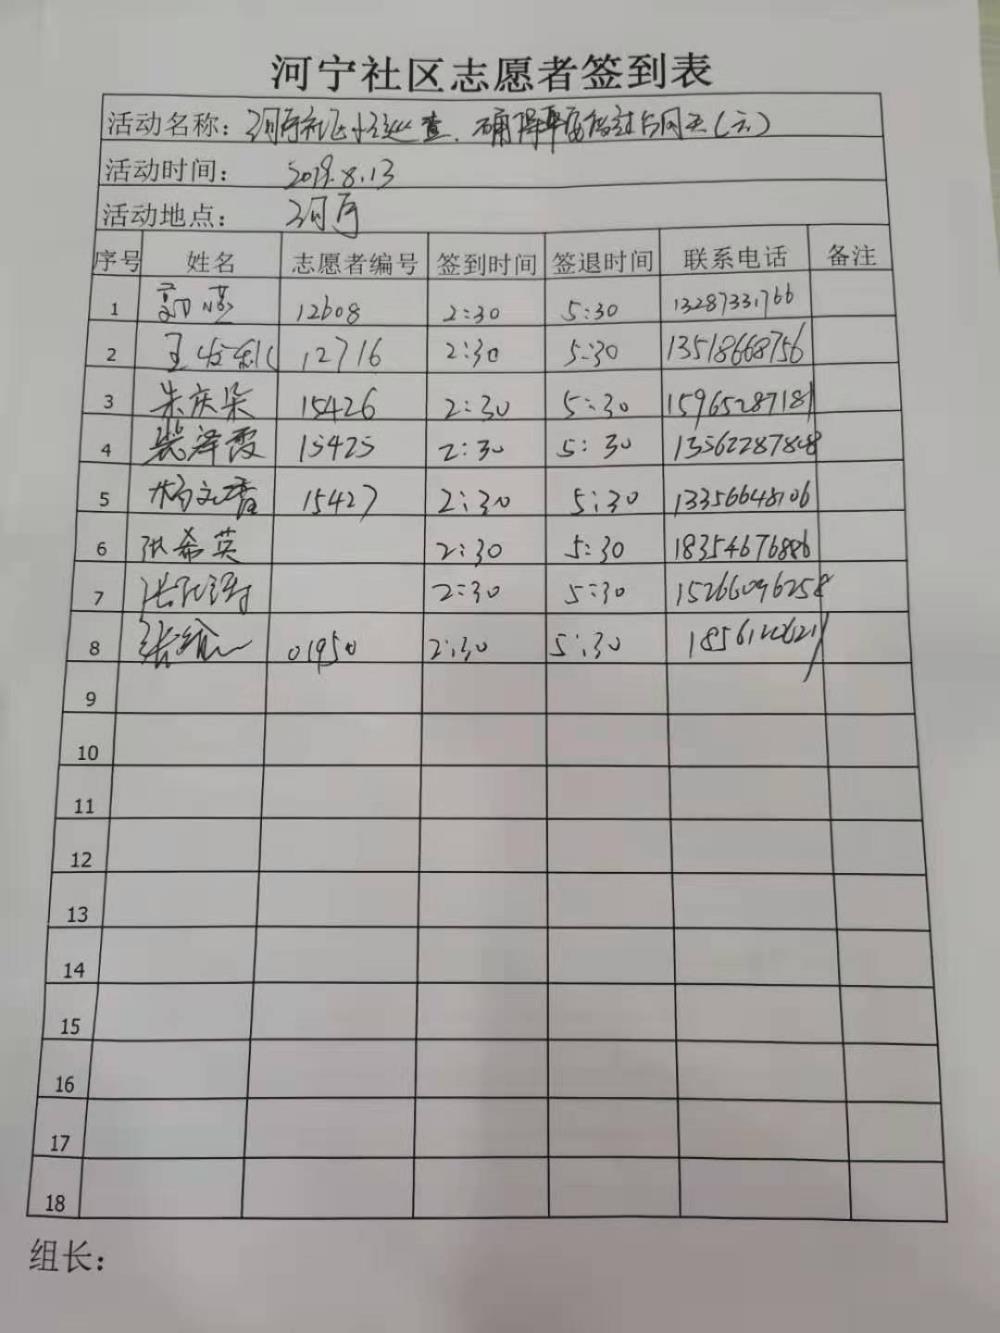 河宁社区志愿者签到表
活动名称：河宁社区小区巡查
活动时间： 2019.8.13
活动地点： 河宁
序号 姓名 志愿者编号 签到时间 签退时间 联系电话 备注
1 12608 2:30 5:30 13287331766
2 王 12716 2:30 5:30 13518668756
3 朱庆朵 15426 2:30 5:30 15965287181
4 柴泽霞 15425 2:30 5:30 13562287808
5 杨文香 15427 2:30 5:30 13356648106
6 洪希英 2:30 5:30 18354676886
7 张 2:30 5:30 15266096258
8 张 01950 2:30 5:30
9
10
11
12
13
14
15
16
17
18
组长：